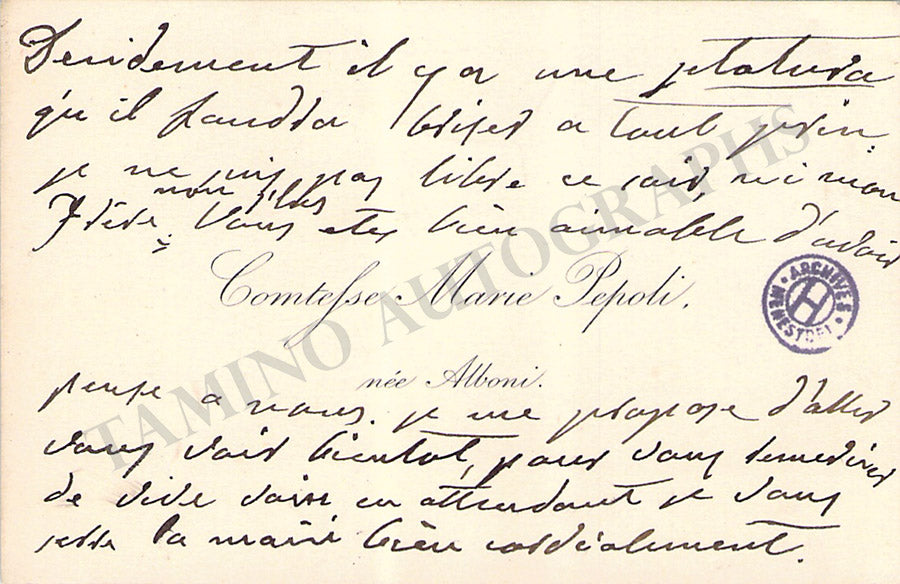 Decidement il y a une jetatura
qu'il faudra briser a tout prix.
je ne suis pas libre ce soir, ni mon
frère non plus. Vous etes bien aimable d'avoir
Comtesse Marie Pepoli.
née Alboni.
pensé a nous. je me propose d'aller
vous voir bientot, pour vous remercier
de vive voix en attendant je vous
serre la main bien cordialement.
ARCHIVES MENESTREL
H
TAMINO AUTOGRAPHS